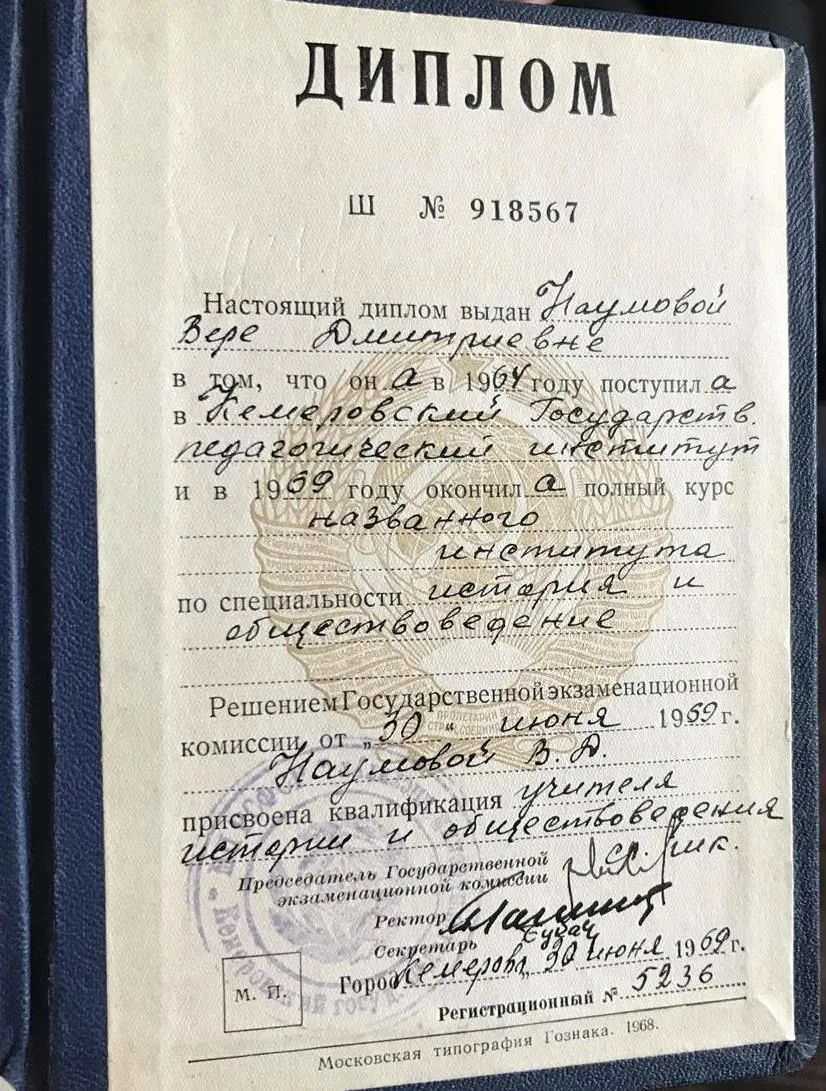 ДИПЛОМ
Ш № 918567
Настоящий диплом выдан Наумовой
Вере Дмитриевне
в том, что он а в 1964 году поступил а
в Кемеровский Государств.
педагогический институт
и в 1969 году окончил а полный курс
названного
института
по специальности история и
обществоведение
Решением Государственной экзаменационной
комиссии от „30" июня 1969 г.
Наумовой В. Д.
присвоена квалификация учителя
истории и обществоведения
Председатель Государственной
экзаменационной комиссии
Ректор
Секретарь
Город Кемерово „30 июня 1969 г.
М. П.
Регистрационный № 5236
Московская типография Гознака. 1968.